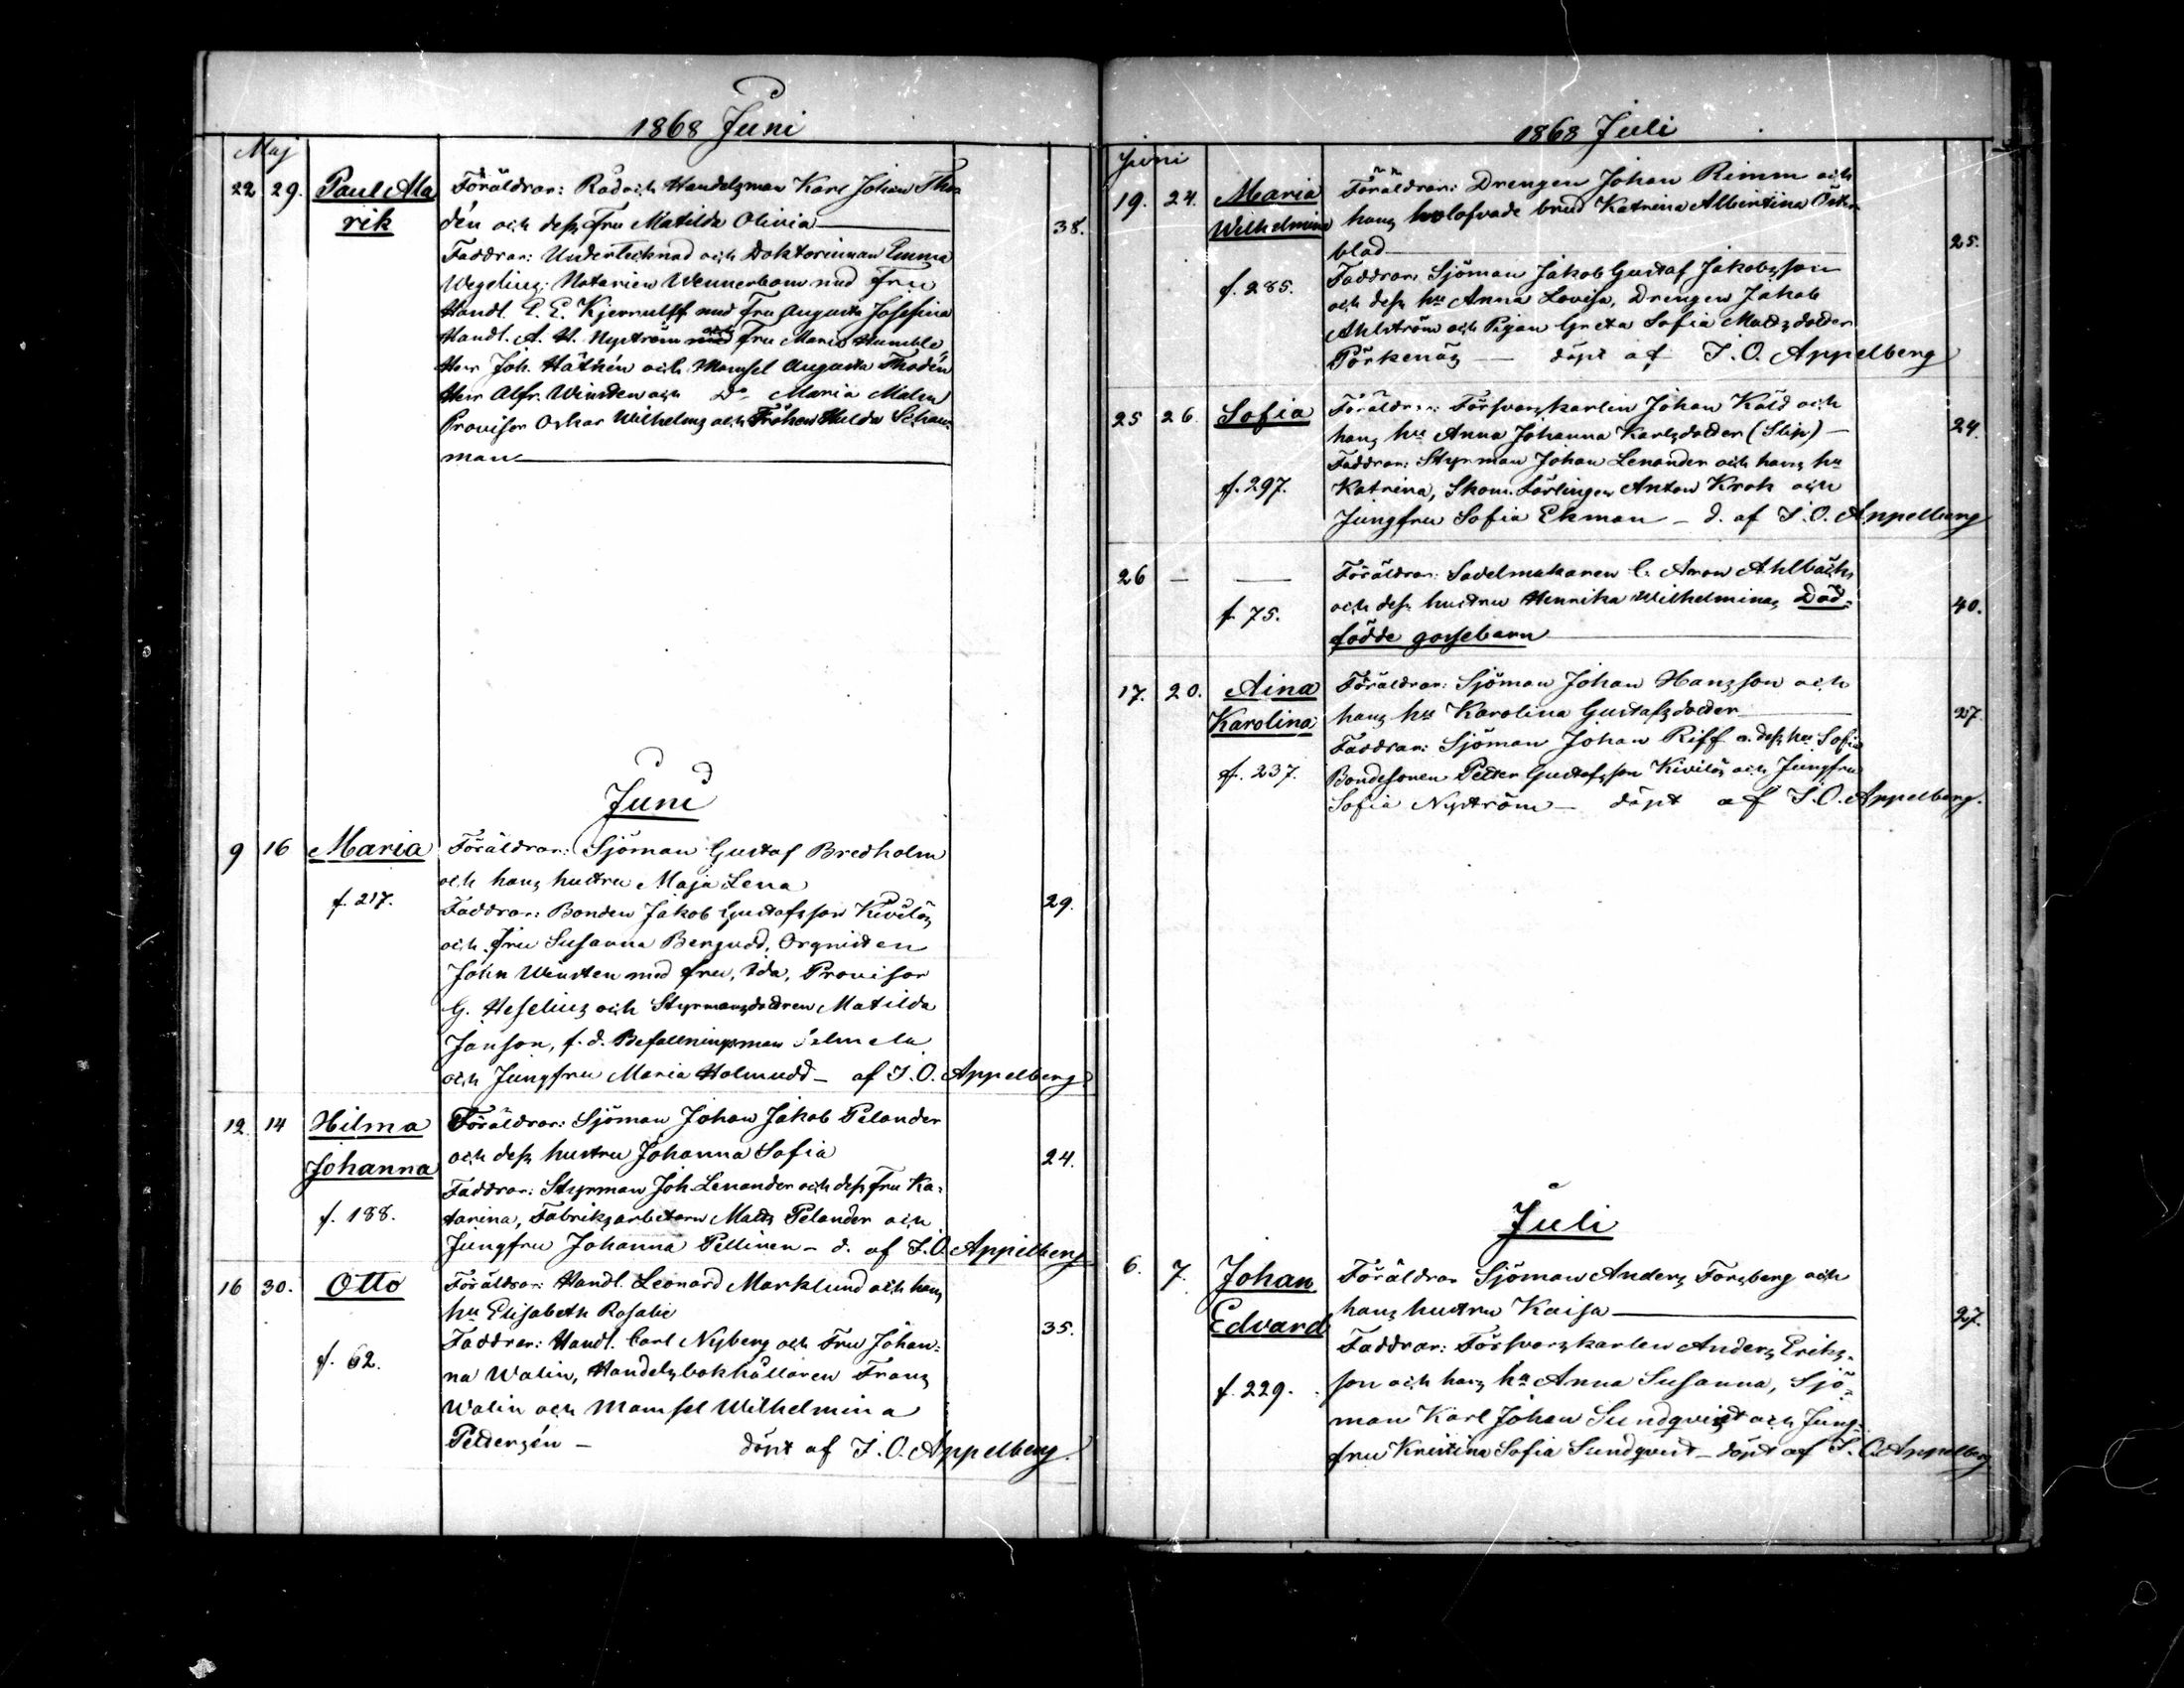 1868 Juni
Maj
22. 29. Paul Ala Föräldrar: Råd och Handelsman Karl Johan Tho
rik dén och dess Fru Matilda Olivia 38.
Faddrar: Undertecknad och Doktorinnan Emma
Wegelius; Notarien Wennerbom med Fru
Handl. E. E. Kjerrulff med Fru Augusta Josefina
Handl. A. H. Nyström och Fru Maria Humble
Herr Joh. Häthén och Mamsel Augusta Thodén
Herr Alfr. Winsten och Do Maria Malm
Provisor Oskar Wilhelms och Fröken Hulda Schau-
man
Juni
9 16 Maria Föräldrar: Sjöman Gustaf Bredholm
och hans hustru Maja Lena
f. 217. Faddrar: Bonden Jakob Gustafsson Kivilös 29.
och fru Susanna Bergudd, Orgnisten
John Winsten med fru, Ida, Provisor
G. Heselius och Styrmansdottren Matilda
Janson, f. d. Befallningsman
och Jungfru Maria Holmudd – af J. O. Appelberg.
12. 14 Hilma Föräldrar: Sjöman Johan Jakob Pelander
Johanna och dess hustru Johanna Sofia 24.
Faddrar: Styrman Joh. Lenander och dess fru Ka-
f. 188. tarina, Fabriksarbetarn Matts Pelander och
Jungfru Johanna Pellinen – d. af J. O. Appelberg
16 30. Otto Föräldrar: Handl. Leonard Marklund och hans
hu Elisabeth Rosalie
Faddrar: Handl. Carl Nyberg och Fru Johan- 35.
f. 62. na Walin, Handelsbokhållaren Frans
Walin och Mamsel Wilhelmina
Petterzén – döpt af J. O. Appelberg.
1868 Juli
Juni
19. 24. Maria Föräldrar: Drengen Johan Rimm och
Wilhelmina hans trolofvade brud Katrina Albertina Öster-
blad 25.
f. 285. Faddrar Sjöman Jakob Gustaf Jakobsson
och dess hu Anna Lovisa, Drengen Jakob
Ahlström och Pigan Greta Sofia Mattsdotter
Pörkenäs — döpt af J. O. Appelberg
25 26. Sofia Föräldrar: Försvarskarlen Johan Köld och
hans hu Anna Johanna Karlsdotter (Slip) – 24.
Faddrar: Styrman Johan Lenander och hans hu
f. 297. Katrina, Skom. Lärlingen Anton Krok och
Jungfru Sofia Ekman – d. af J. O. Appelberg
26 – — Föräldrar: Sadelmakaren C. Aron Ahlbäck
f. 75. och dess hustru Henrika Wilhelminas Död- 40.
födde gossebarn
17. 20. Aina Föräldrar: Sjöman Johan Hansson och
Karolina hans hu Karolina Gustafsdotter 27
Faddrar: Sjöman Johan Riff o. dess hu Sofia
f. 237. Bondesonen Petter Gustafsson Kivilös och Jungfru
Sofia Nyström – döpt af J. O. Appelberg.
Juli
6. 7. Johan Föräldrar Sjöman Anders Forsberg och
Edvard hans hustru Kaisa 27.
Faddrar: Försvarskarlen Anders Eriks-
f. 229. son och hans hu Anna Susanna, Sjö-
man Karl Johan Sundqvist och Jung-
fru Kristina Sofia Sundqvist – döpt af J. O. Appelberg